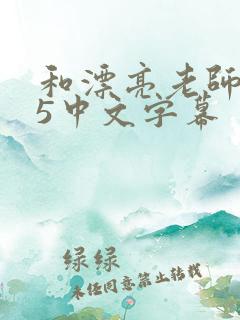 和漂亮老師
5中文字幕
绿绿
未经同意禁止转载